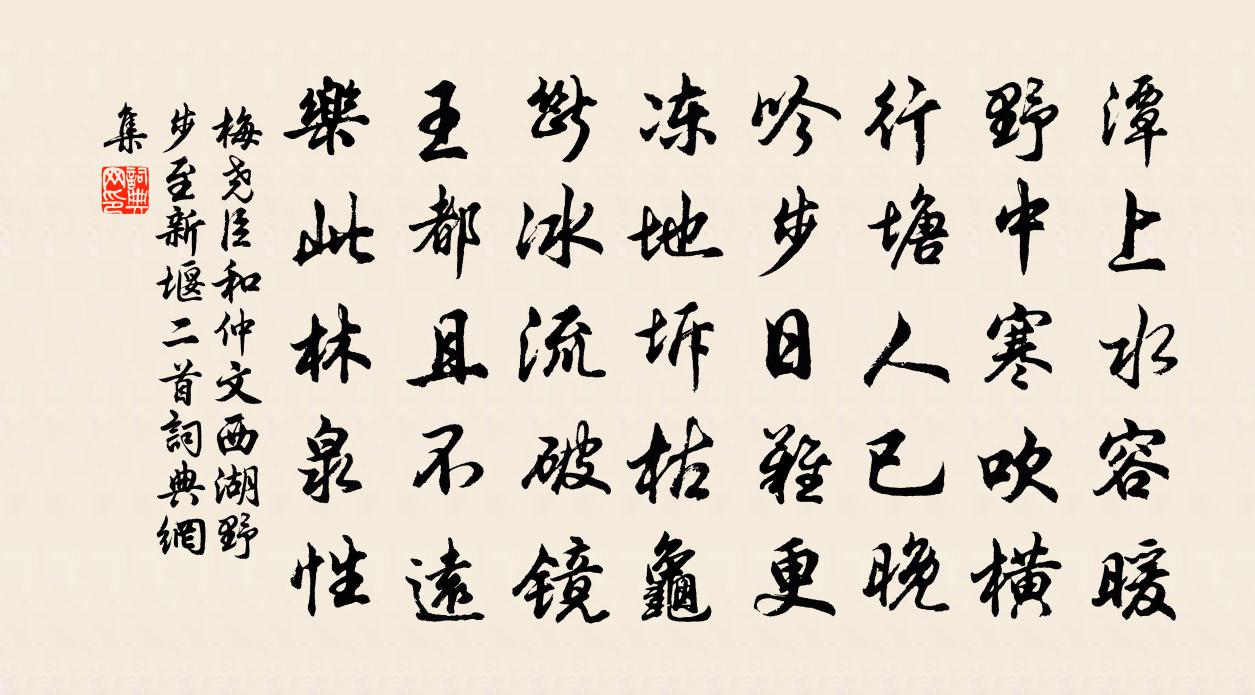 潭上水容暖
野中寒吹横
行塘人已晚
吟步日難更
冻地坼枯龜
斷冰流破镜
王都且不遠
樂此林泉性
梅尧臣和仲文西湖野
步至新堰二首詞典網
集
詞典網印